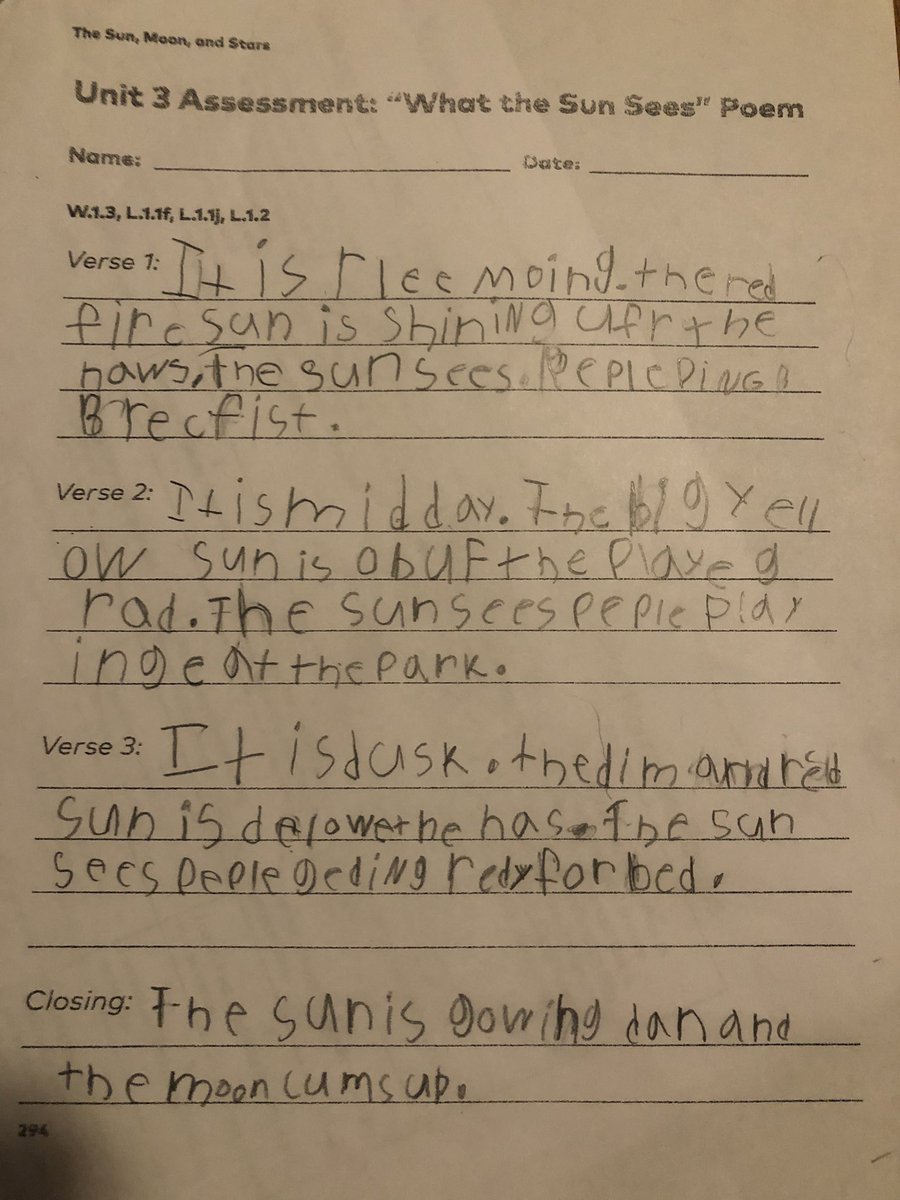 The Sun, Moon, and Stars
Unit 3 Assessment: "What the Sun Sees" Poem
Name: Date:
W.1.3, L.1.1f, L.1.1j, L.1.2
Verse 1: It is rlee moing. the red
fire sun is shining ufr the
haws, the sun sees. Peple Ding
Brecfist.
Verse 2: It is mid day. The big yell
ow sun is obuf the playe g
rad. The sun sees peple play
inge at the park.
Verse 3: It is dusk. the dim and red
sun is delowe the has. The sun
sees peple geding redy for bed.
Closing: The sun is gowing dan and
the moon cums up.
294